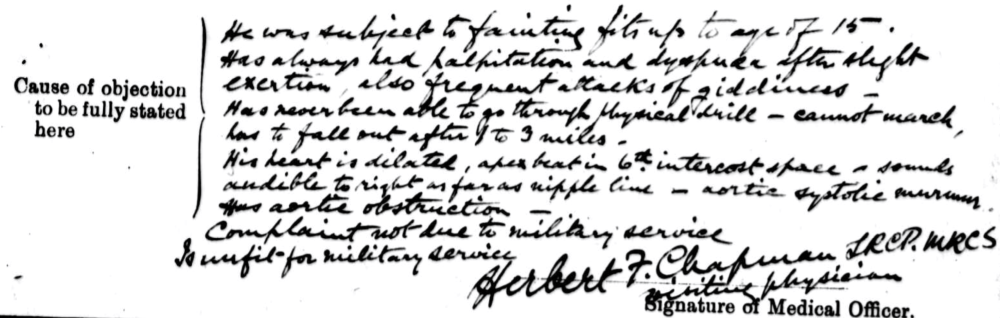 Cause of objection
to be fully stated
here
He was subject to fainting fits up to age of 15.
Has always had palpitation and dyspnea after slight
exertion, also frequent attacks of giddiness -
Has never been able to go through physical drill - cannot march,
has to fall out after 1 to 3 miles -
His heart is dilated, apex beat in 6th intercost space - sounds
audible to right as far as nipple line - aortic systolic murmur.
Has aortic obstruction -
Complaint not due to military service
Is unfit for military service
Herbert F. Chapman LRCP. MRCS
visiting physician
Signature of Medical Officer.